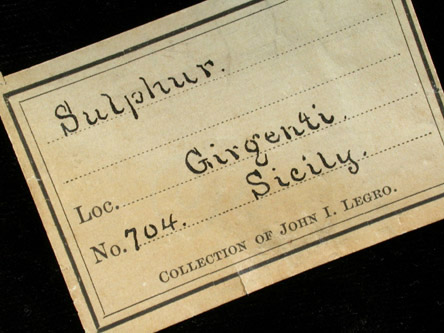 Sulphur.
Loc. Girgenti.
No. 704. Sicily.
COLLECTION OF JOHN I. LEGRO.